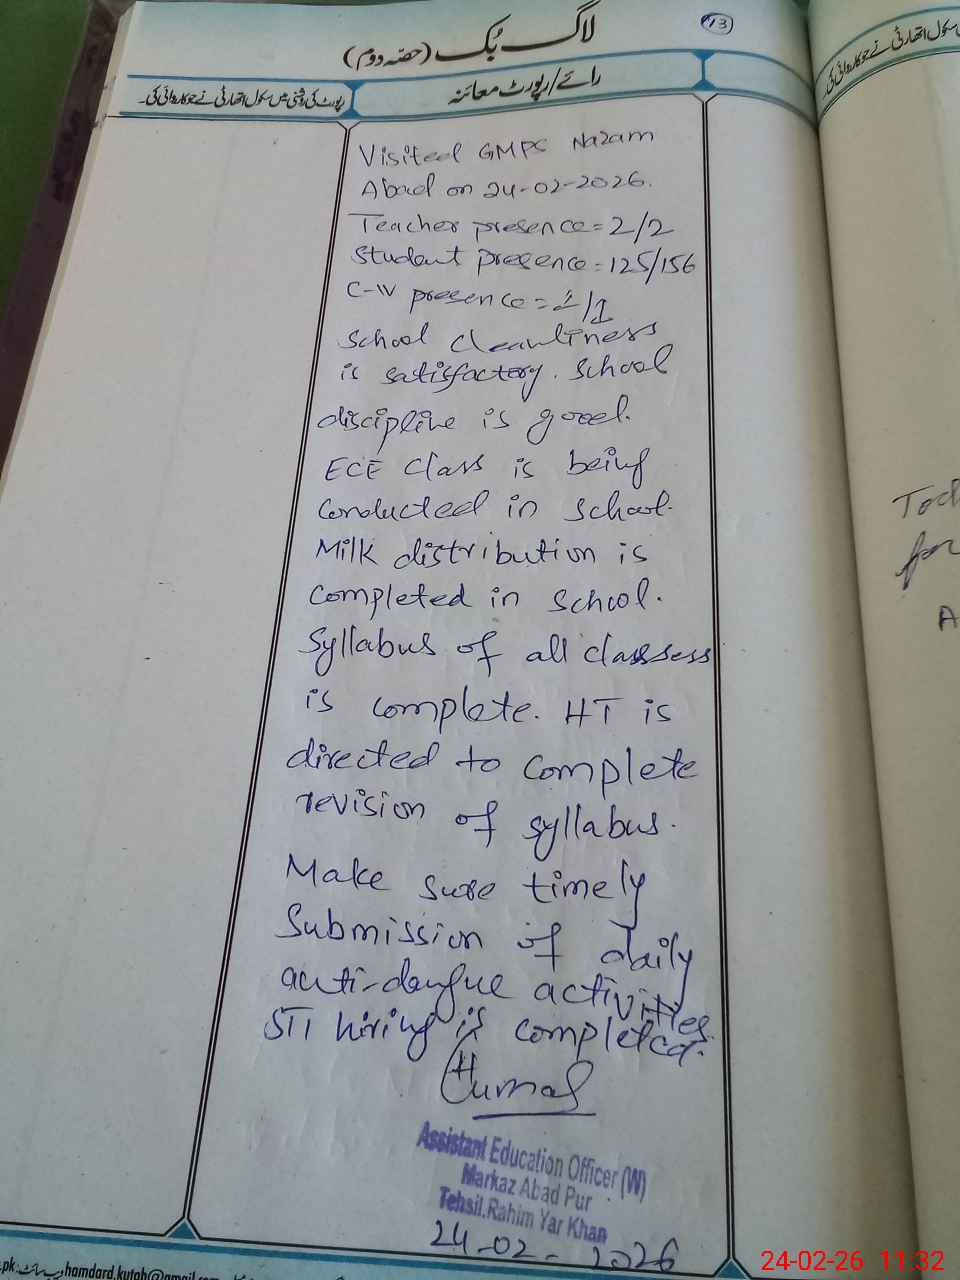 13
لاگ بک (حصہ دوم)
رائے/رپورٹ معائنہ
رپورٹ کی روشنی میں سکول اتھارٹی نے جو کاروائی کی۔
Visited GMPS Nazam
Abad on 24-02-2026.
Teacher presence = 2/2
Student presence = 125/156
C-W presence = 1/1
School cleanliness
is satisfactory. School
discipline is good.
ECE Class is being
conducted in school.
Milk distribution is
completed in school.
Syllabus of all classsess
is complete. HT is
directed to complete
revision of syllabus.
Make sure timely
Submission of daily
anti-dengue activities.
STI hiring is completed.
Assistant Education Officer (W)
Markaz Abad Pur
Tehsil.Rahim Yar Khan
24-02-2026
سکول اتھارٹی نے جو کاروائی کی۔
for
A
.pk
hamdard.kutab@gmail.com
24-02-26 11:32